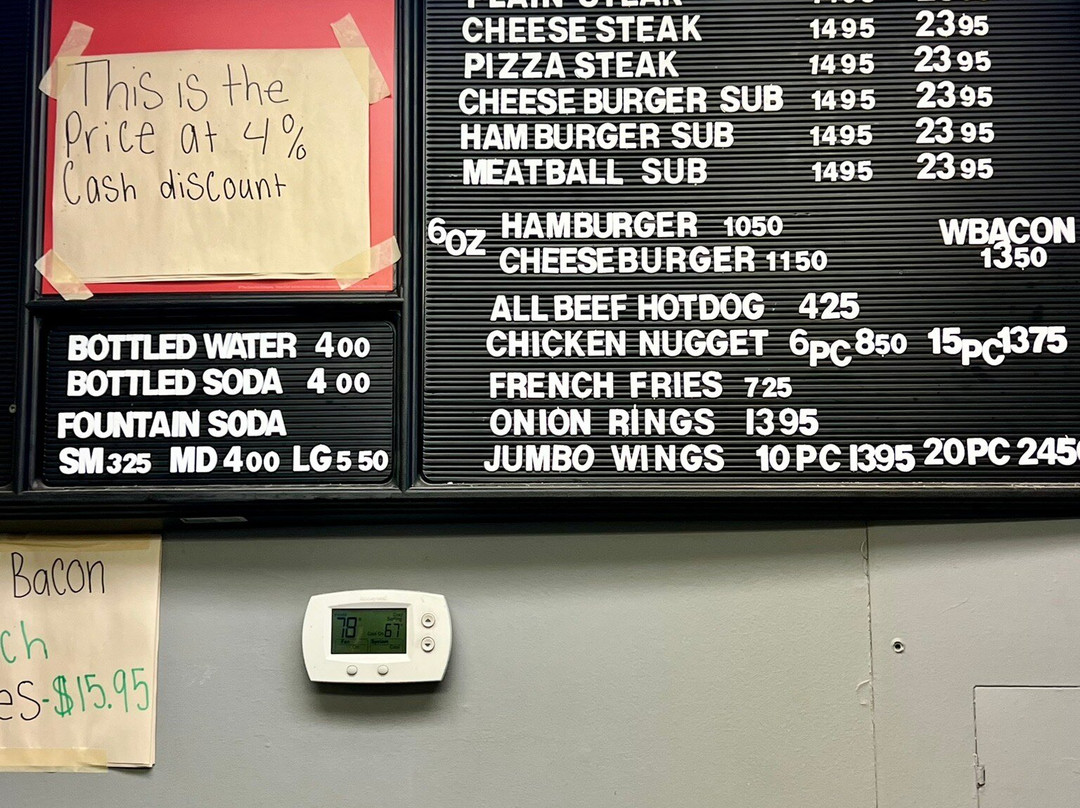 This is the
Price at 4%
Cash discount
BOTTLED WATER 400
BOTTLED SODA 400
FOUNTAIN SODA
SM 325 MD 400 LG 550
PLAIN STEAK
CHEESE STEAK 1495 2395
PIZZA STEAK 1495 2395
CHEESE BURGER SUB 1495 2395
HAM BURGER SUB 1495 2395
MEATBALL SUB 1495 2395
6OZ HAMBURGER 1050 WBACON
CHEESEBURGER 1150 1350
ALL BEEF HOTDOG 425
CHICKEN NUGGET 6PC 850 15PC 1375
FRENCH FRIES 725
ONION RINGS 1395
JUMBO WINGS 10PC 1395 20PC 2450
Bacon
ch
es-$15.95
78 67